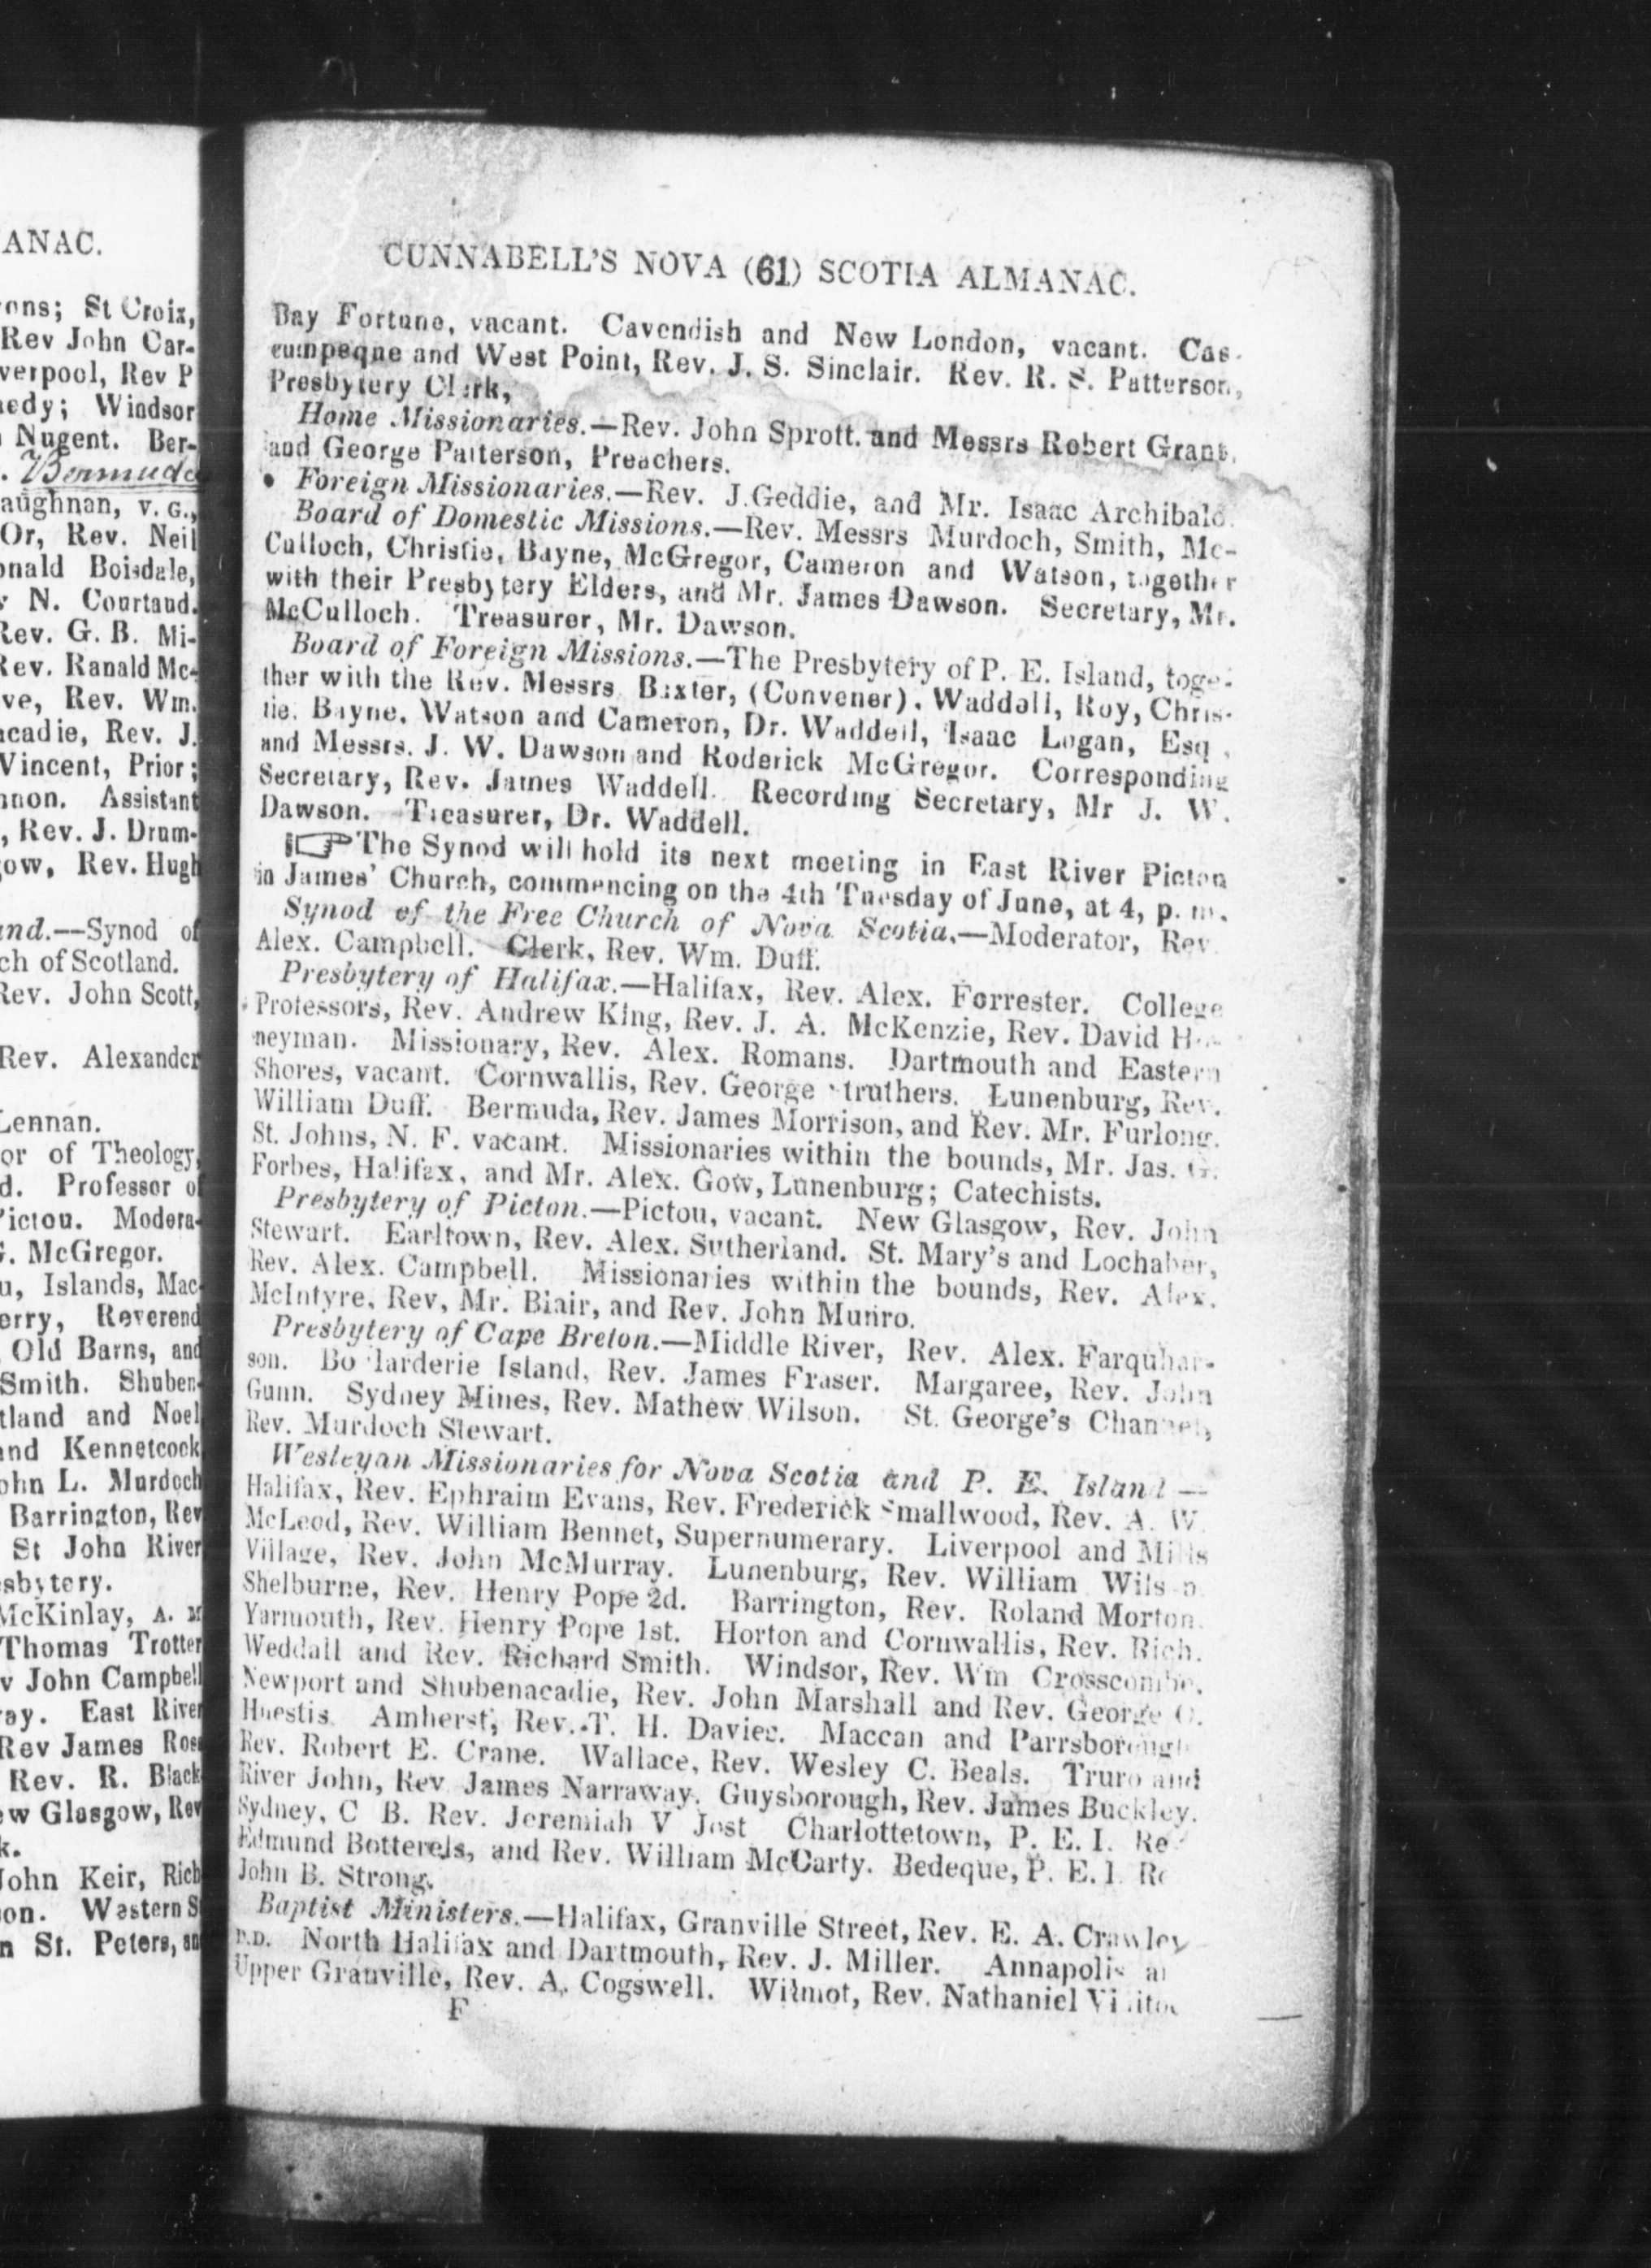 ANAC.
ons; St Croix,
Rev John Car-
verpool, Rev P
nedy; Windsor
Nugent. Ber-
. Bermuda
aughnan, V. G.,
Or, Rev. Neil
onald Boisdale,
N. Courtaud.
Rev. G. B. Mi-
Rev. Ranald Mc-
ve, Rev. Wm.
acadie, Rev. J.
Vincent, Prior;
nnon. Assistant
, Rev. J. Drum-
ow, Rev. Hugh
and.—Synod of
ch of Scotland.
Rev. John Scott,
Rev. Alexander
Lennan.
or of Theology,
d. Professor of
Pictou. Modera-
G. McGregor.
u, Islands, Mac-
erry, Reverend
Old Barns, and
Smith. Shuben-
tland and Noel
and Kennetcook
ohn L. Murdoch
Barrington, Rev
St John River
sbytery.
McKinlay, A. M
Thomas Trotter
v John Campbell
ay. East River
Rev James Ross
Rev. R. Black
ew Glasgow, Rev
k.
John Keir, Rich
on. Western S
n St. Peters, an
CUNNABELL'S NOVA (61) SCOTIA ALMANAC.
Bay Fortune, vacant. Cavendish and New London, vacant. Cas-
cumpeque and West Point, Rev. J. S. Sinclair. Rev. R. S. Patterson,
Presbytery Clerk,
Home Missionaries.—Rev. John Sprott. and Messrs Robert Grant,
and George Patterson, Preachers.
Foreign Missionaries.—Rev. J. Geddie, and Mr. Isaac Archibald.
Board of Domestic Missions.—Rev. Messrs Murdoch, Smith, Mc-
Culloch, Christie, Bayne, McGregor, Cameron and Watson, together
with their Presbytery Elders, and Mr. James Dawson. Secretary, Mr.
McCulloch. Treasurer, Mr. Dawson.
Board of Foreign Missions.—The Presbytery of P. E. Island, toge-
ther with the Rev. Messrs Baxter, (Convener), Waddell, Roy, Chris-
tie, Bayne, Watson and Cameron, Dr. Waddell, Isaac Logan, Esq.
and Messrs. J. W. Dawson and Roderick McGregor. Corresponding
Secretary, Rev. James Waddell. Recording Secretary, Mr J. W.
Dawson. Treasurer, Dr. Waddell.
☞ The Synod will hold its next meeting in East River Picton
in James' Church, commencing on the 4th Tuesday of June, at 4, p. m.
Synod of the Free Church of Nova Scotia.—Moderator, Rev.
Alex. Campbell. Clerk, Rev. Wm. Duff.
Presbytery of Halifax.—Halifax, Rev. Alex. Forrester. College
Professors, Rev. Andrew King, Rev. J. A. McKenzie, Rev. David Ho-
neyman. Missionary, Rev. Alex. Romans. Dartmouth and Eastern
Shores, vacant. Cornwallis, Rev. George Struthers. Lunenburg, Rev.
William Duff. Bermuda, Rev. James Morrison, and Rev. Mr. Furlong.
St. Johns, N. F. vacant. Missionaries within the bounds, Mr. Jas. G.
Forbes, Halifax, and Mr. Alex. Gow, Lunenburg; Catechists.
Presbytery of Picton.—Pictou, vacant. New Glasgow, Rev. John
Stewart. Earltown, Rev. Alex. Sutherland. St. Mary's and Lochaber,
Rev. Alex. Campbell. Missionaries within the bounds, Rev. Alex.
McIntyre, Rev, Mr. Blair, and Rev. John Munro.
Presbytery of Cape Breton.—Middle River, Rev. Alex. Farquhar-
son. Boularderie Island, Rev. James Fraser. Margaree, Rev. John
Gunn. Sydney Mines, Rev. Mathew Wilson. St. George's Channel,
Rev. Murdoch Stewart.
Wesleyan Missionaries for Nova Scotia and P. E. Island—
Halifax, Rev. Ephraim Evans, Rev. Frederick Smallwood, Rev. A. W.
McLeod, Rev. William Bennet, Supernumerary. Liverpool and Mills
Village, Rev. John McMurray. Lunenburg, Rev. William Wilson.
Shelburne, Rev. Henry Pope 2d. Barrington, Rev. Roland Morton.
Yarmouth, Rev. Henry Pope 1st. Horton and Cornwallis, Rev. Rich.
Weddall and Rev. Richard Smith. Windsor, Rev. Wm Crosscombe.
Newport and Shubenacadie, Rev. John Marshall and Rev. George O.
Huestis. Amherst, Rev. T. H. Davies. Maccan and Parrsborough
Rev. Robert E. Crane. Wallace, Rev. Wesley C. Beals. Truro and
River John, Rev James Narraway. Guysborough, Rev. James Buckley.
Sydney, C B. Rev. Jeremiah V Jost Charlottetown, P. E. I. Re
Edmund Botterels, and Rev. William McCarty. Bedeque, P. E. I. Re
John B. Strong.
Baptist Ministers.—Halifax, Granville Street, Rev. E. A. Crawley
D.D. North Halifax and Dartmouth, Rev. J. Miller. Annapolis a
Upper Granville, Rev. A. Cogswell. Wilmot, Rev. Nathaniel
F